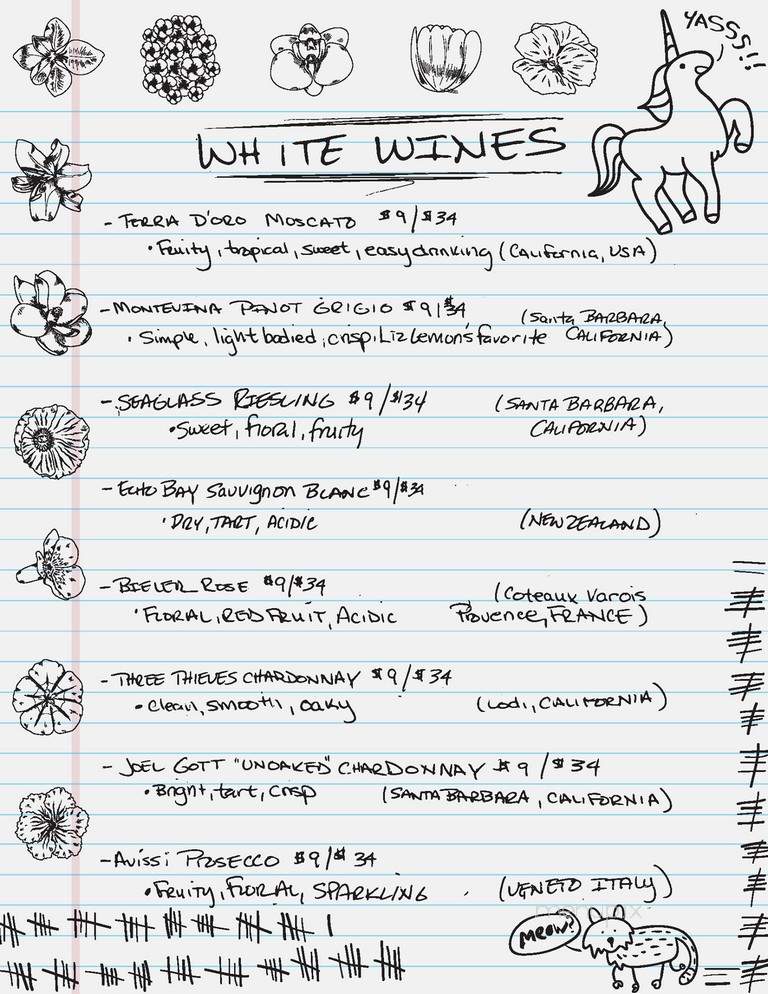 YASSS!!
WHITE WINES
- TERRA D'ORO MOSCATO $9/$34
• Fruity, tropical, sweet, easy drinking (California, USA)
- MONTEVINA PINOT GRIGIO $9/$34 (Santa BARBARA,
• Simple, light bodied, crisp, Liz Lemon's favorite CALIFORNIA)
- SEAGLASS RIESLING $9/$34 (SANTA BARBARA,
• Sweet, floral, fruity CALIFORNIA)
- Echo BAY Sauvignon BLANC $9/$34
• DRY, TART, ACIDIC (NEW ZEALAND)
- BIELER ROSE $9/$34 (Coteaux Varois
• FLORAL, RED FRUIT, ACIDIC Provence, FRANCE)
- THREE THIEVES CHARDONNAY $9/$34
• Clean, smooth, oaky (Lodi, CALIFORNIA)
- JOEL GOTT "UNOAKED" CHARDONNAY $9/$34
• Bright, tart, crisp (SANTA BARBARA, CALIFORNIA)
- Avissi PROSECCO $9/$34
• Fruity, FLORAL, SPARKLING (VENETO ITALY)
MEOW?